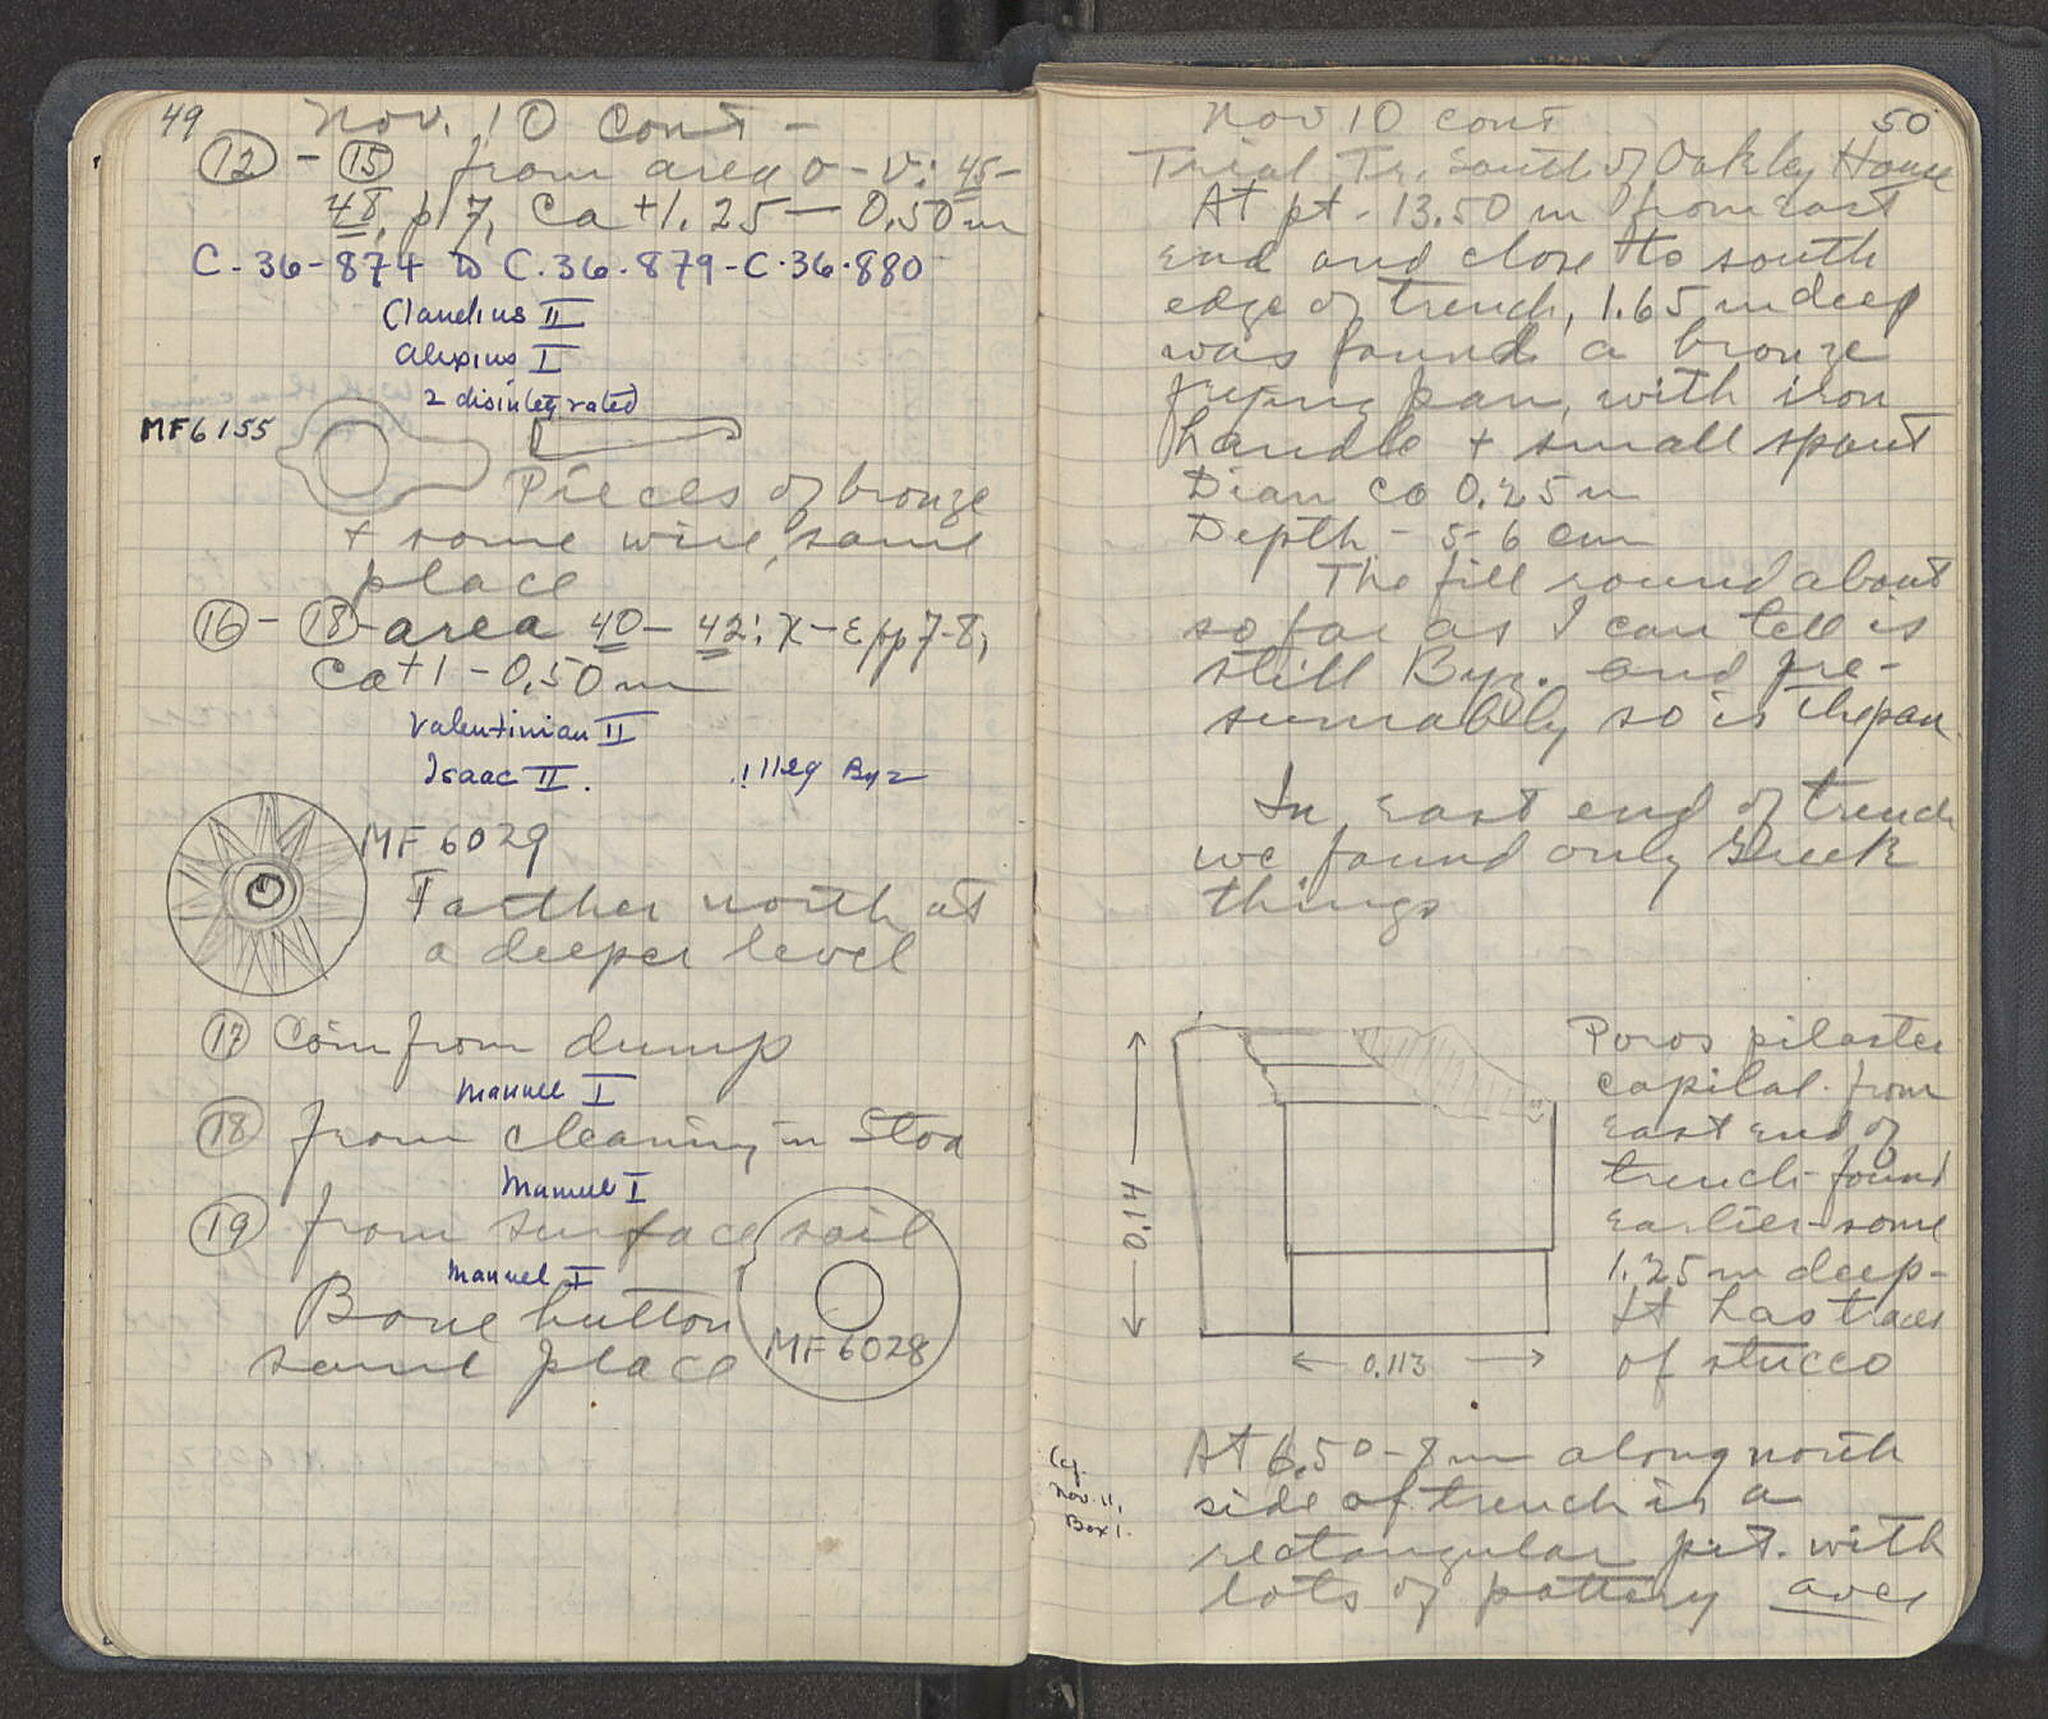 49
Nov. 10 Cont -
(12) - (15) from area o - v: 45-
48, p 7, Ca +1.25 - 0.50 m
C-36-874 to C.36.879-C.36.880
Claudius II
Alexius I
2 disintegrated
MF6155
Pieces of bronze
+ some wire, same
place
(16) - (18) - area 40 - 42: X - E pp 7-8,
Ca +1 - 0.50 m
Valentinian II
Isaac II. 1 illeg Byz
MF 6029
Farther north at
a deeper level
(17) Coin from dump
Manuel I
(18) from cleaning in Stoa
Manuel I
(19) from surface soil
Manuel I
Bone button
same place
MF 6028
Nov 10 cont
50
Trial Tr. South of Oakley House
At pt - 13.50 m from east
end and close to south
edge of trench, 1.65 m deep
was found a bronze
frying pan, with iron
handle + small spout
Diam ca 0.25 m
Depth - 5-6 cm
The fill round about
so far as I can tell is
still Byz. and pre-
sumably so is the pan
In east end of trench
we found only Greek
things
Poros pilaster
capital from
east end of
trench - found
earlier - some
1.25 m deep -
It has traces
of stucco
0.14
0.113
(cf.
Nov. 11,
Box 1.
At 6.50 - 8 m along north
side of trench is a
rectangular pit. with
lots of pottery over